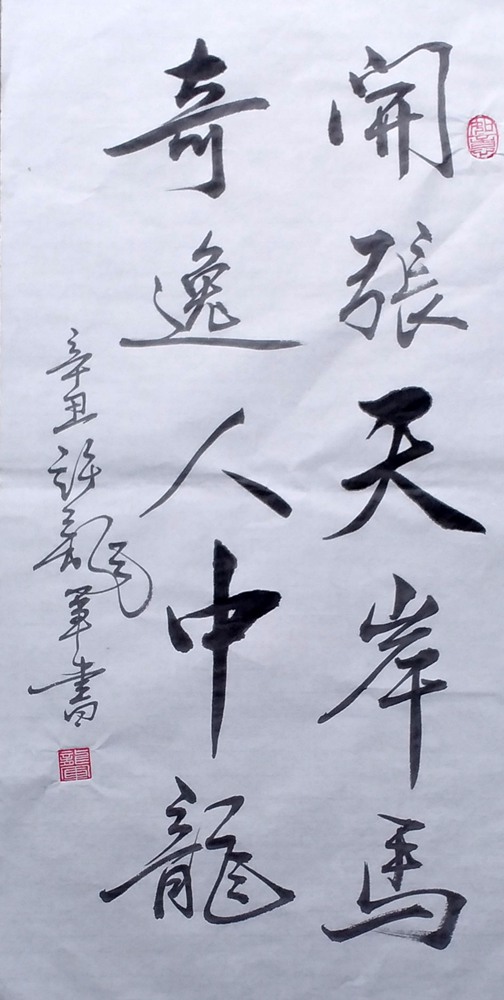 開張天岸馬
奇逸人中龍
辛丑許龍軍書